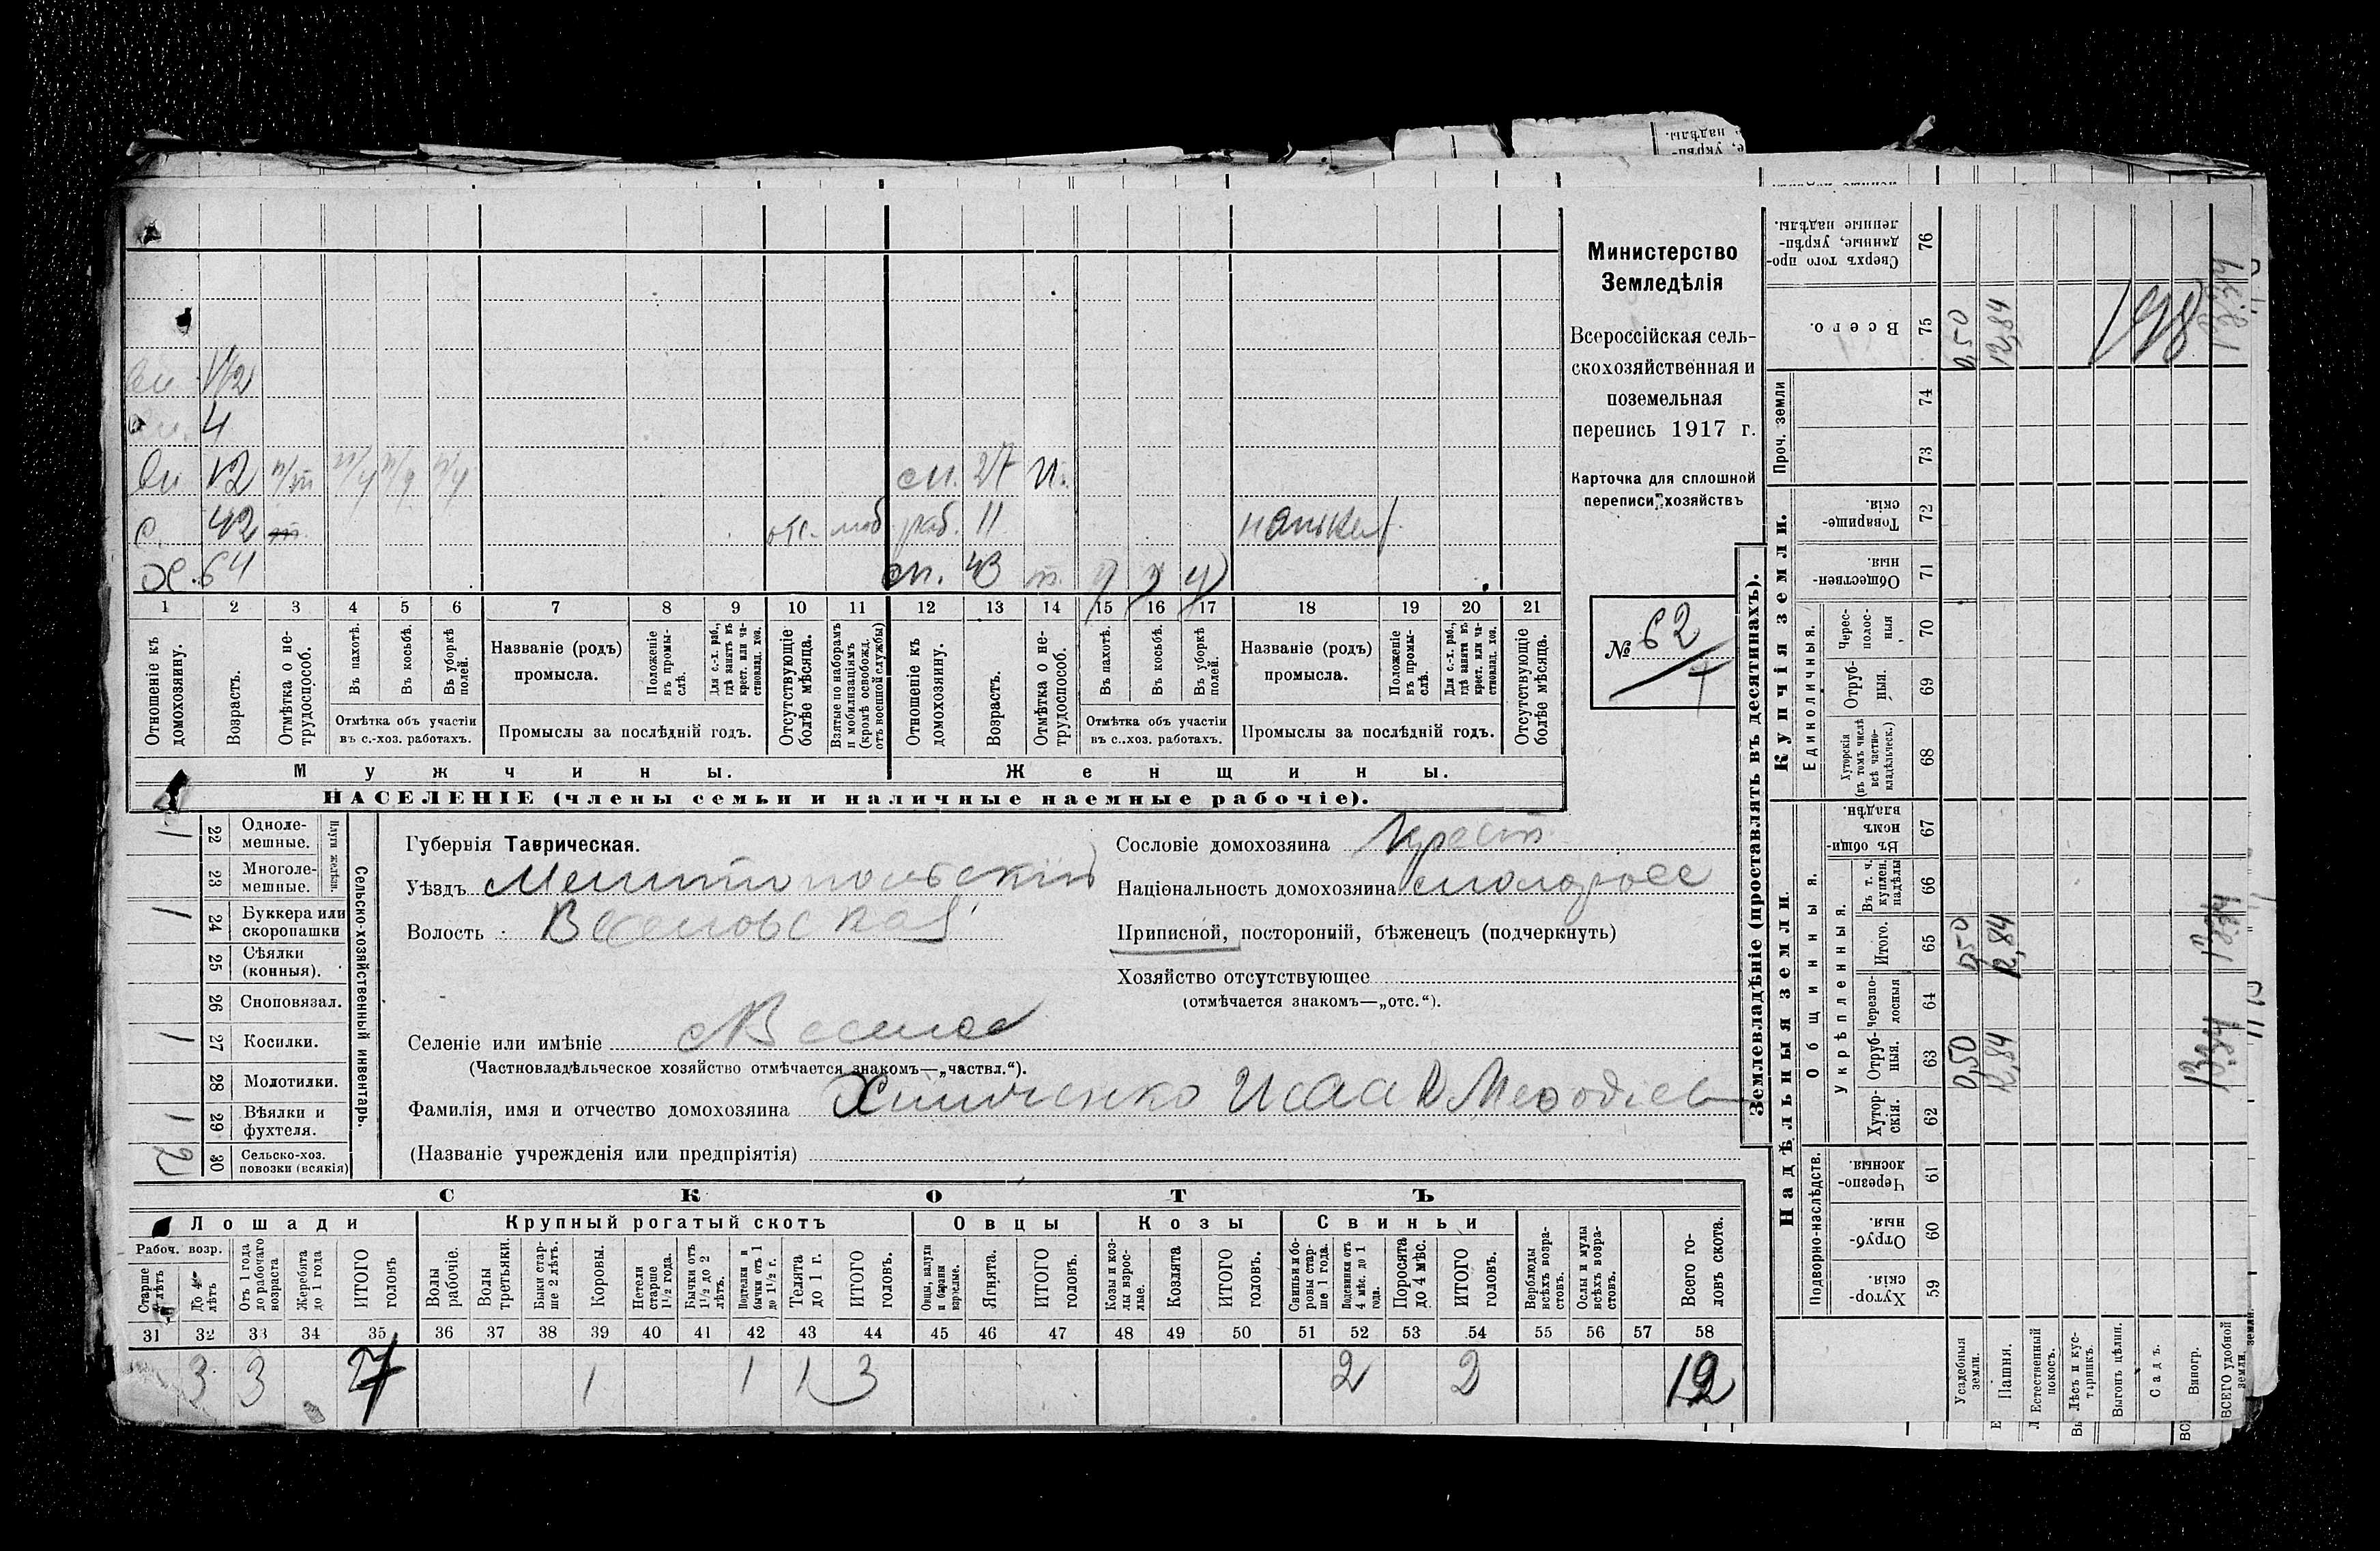 Министерство
Земледѣлія
Всероссійская сель-
скохозяйственная и
поземельная
перепись 1917 г.
Карточка для сплошной
переписи хозяйствъ
№ 62
сп. 27 н.
12
4
с. 42 отс. моб. раб. 11
х. 64 сп. 43
1 2 3 4 5 6 7 8 9 10 11 12 13 14 15 16 17 18 19 20 21
Отношеніе къ домохозяину.
Возрастъ.
Отмѣтка о не-трудоспособ.
Въ пахотѣ.
Въ косьбѣ.
Въ уборкѣ полей.
Отмѣтка объ участіи
въ с.-хоз. работахъ.
Названіе (родъ)
промысла.
Положеніе въ промы-слѣ.
Для с.-х. раб., гдѣ занятъ въ крест. или ча-стновлад. хоз.
Промыслы за послѣдній годъ.
Отсутствующіе болѣе мѣсяца.
Взятые по наборамъ и мобилизаціямъ (кромѣ освобожд. отъ военной службы)
Отношеніе къ домохозяину.
Возрастъ.
Отмѣтка о не-трудоспособ.
Въ пахотѣ.
Въ косьбѣ.
Въ уборкѣ полей.
Отмѣтка объ участіи
въ с.-хоз. работахъ.
Названіе (родъ)
промысла.
Положеніе въ промы-слѣ.
Для с.-х. раб., гдѣ занята въ крест. или ча-стновлад. хоз.
Промыслы за послѣдній годъ.
Отсутствующіе болѣе мѣсяца.
Мужчины.
Женщины.
НАСЕЛЕНІЕ (члены семьи и наличные наемные рабочіе).
Сельско-хозяйственный инвентарь.
Плуги желѣзн.
1 22 Одноле-мешные.
23 Многоле-мешные.
1 24 Буккера или скоропашки
25 Сѣялки (конныя).
26 Сноповязал.
1 27 Косилки.
28 Молотилки.
1 29 Вѣялки и фухтеля.
2 30 Сельско-хоз. повозки (всякія)
Губернія Таврическая.
Уѣздъ Мелитопольскій
Волость Веселовская
Селеніе или имѣніе с Веселое
(Частновладѣльческое хозяйство отмѣчается знакомъ—„частвл.“).
Фамилія, имя и отчество домохозяина Химченко Исаак Меѳодіев
(Названіе учрежденія или предпріятія)
Сословіе домохозяина Крест
Національность домохозяина малоросс
Приписной, посторонній, бѣженецъ (подчеркнуть)
Хозяйство отсутствующее
(отмѣчается знакомъ—„отс.“).
СКОТЪ
Лошади
Крупный рогатый скотъ
Овцы
Козы
Свиньи
Рабоч. возр.
Старше 4 лѣтъ
До 4 лѣтъ
Отъ 1 года до рабочаго возраста
Жеребята до 1 года
ИТОГО головъ
Волы рабочіе.
Волы третьяки.
Быки стар-ше 2 лѣтъ.
Коровы.
Нетели старше 1½ года.
Бычки отъ 1½ до 2 лѣтъ.
Подтелки и бычки отъ 1 до 1½ г.
Телята до 1 г.
ИТОГО головъ.
Овцы, валухи и бараны взрослые.
Ягнята.
ИТОГО головъ.
Козы и коз-лы взрос-лые.
Козлята
ИТОГО головъ.
Свиньи и бо-ровы стар-ше 1 года.
Подсвинки отъ 4 мѣс. до 1 года.
Поросята до 4 мѣс.
ИТОГО головъ.
Верблюды всѣхъ возра-стовъ.
Ослы и мулы всѣхъ возра-стовъ.
Всего го-ловъ скота.
31 32 33 34 35 36 37 38 39 40 41 42 43 44 45 46 47 48 49 50 51 52 53 54 55 56 57 58
3 3 7 1 1 1 3 2 2 12
Землевладѣніе (проставлять въ десятинахъ).
Надѣльныя земли.
Купчія земли.
Проч. земли
Подворно-наслѣдств.
Общинныя.
Укрѣпленныя.
Единоличныя.
Хутор-скія. 59
Отруб-ныя. 60
Черезпо-лосныя. 61
Хутор-скія. 62
Отруб-ныя. 63
Черезпо-лосныя 64
Итого. 65
Въ т. ч. куплен. надѣлы 66
Въ общи-номъ владѣн. 67
Хуторскія (въ томъ числѣ всѣ частно-владѣльческ.) 68
Отруб-ныя. 69
Черес-полос-ныя 70
Обществен-ныя. 71
Товарище-скія. 72
73
74
Всего. 75
Сверхъ того про-данные, укрѣп-ленные надѣлы. 76
Усадебныя земли. 0,50 0,50 0,50
Пашня. 12,84 12,84 12,84
Естественный покосъ.
Лѣсъ и кус-тарникъ.
Выгонъ цѣлин.
Садъ.
Виногр.
ВСЕГО удобной земли.